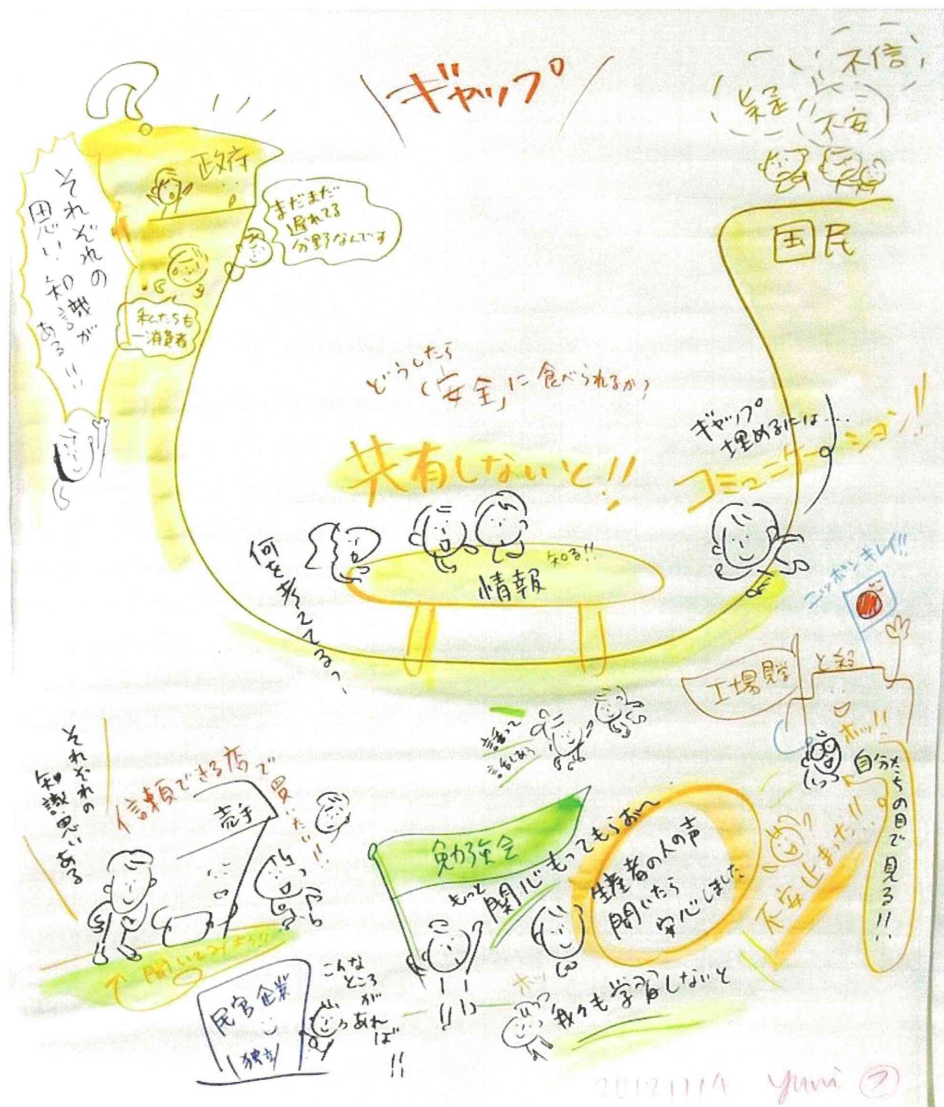 ギャップ
不信
疑
不安
国民
政府
まだまだ
遅れてる
分野なんです
私たちも
一消費者
それぞれの
思い、知識が
ある!!
どうしたら
「安全」に食べられるか?
共有しないと!!
ギャップ
埋めるには…
コミュニケーション!!
知る!!
情報
何を考えてる?
ニッポンキレイ!!
工場見学
ホッ!!
自分たちの目で見る!!
不安止まった!!
話って
それぞれの
知識思いある
信頼できる店で買いたい!!
売手
聞いてみよう!!
勉強会
もっと
関心もってもらおー
生産者の人の声
聞いたら
安心しました
ホッ
我々も学習しないと
民官企業
独立
こんな
ところ
が
あれば
!!
20121114 yumi ⑦